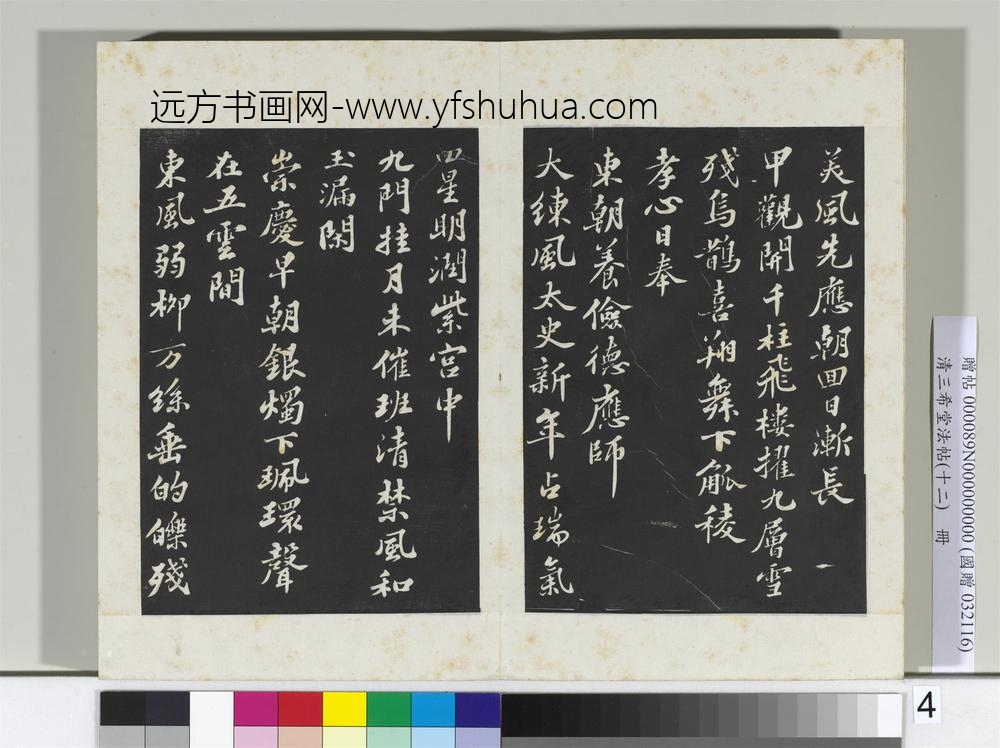 远方书画网-www.yfshuhua.com
美風先應朝回日漸長 一
甲觀開千柱飛樓擢九層雪
殘烏鵲喜翔舞下觚稜
孝心日奉
東朝養儉德應師
大練風太史新年占瑞氣
四星明潤紫宮中
九門挂月未催班清禁風和
玉漏閑
崇慶早朝銀燭下珮環聲
在五雲間
東風弱柳万絲垂的皪殘
贈帖 0000089N000000000 (國贈 032116)
清三希堂法帖(十二) 冊
4